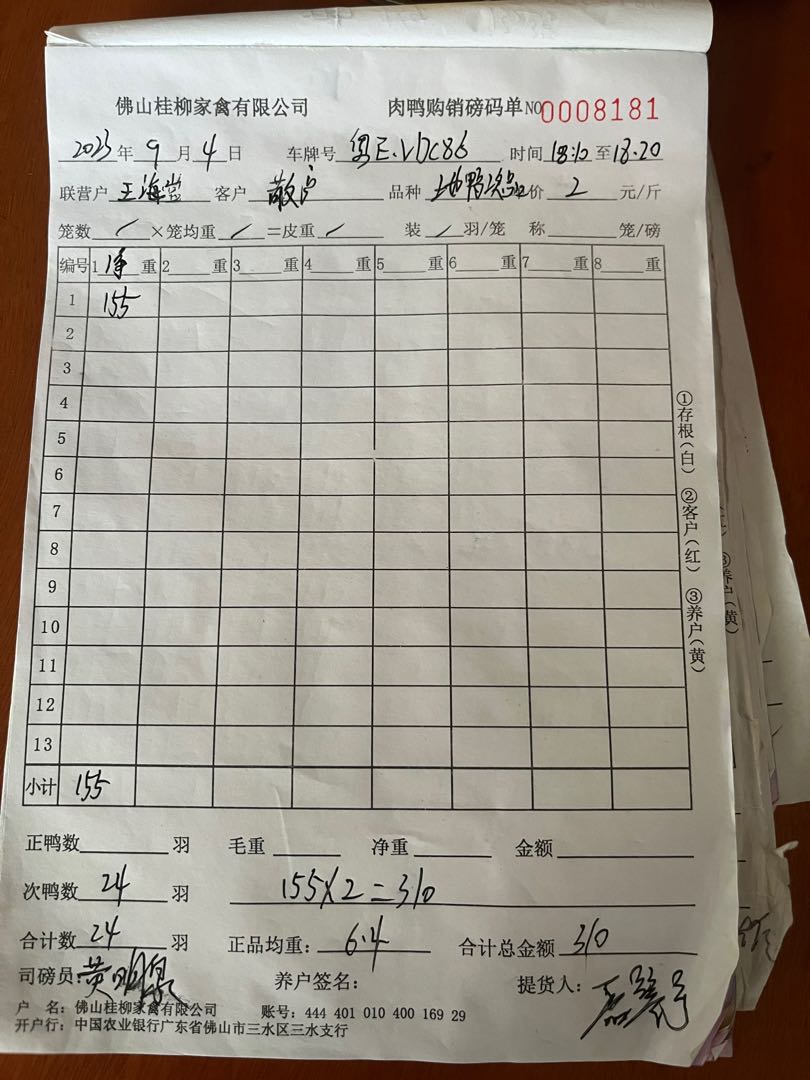 佛山桂柳家禽有限公司 肉鸭购销磅码单 NO 0008181
2023年 9 月 4 日 车牌号 粤E. 时间 18:10 至 18.20
联营户 王海棠 客户 散户 品种 价 2 元/斤
笼数 / ×笼均重 / =皮重 / 装 / 羽/笼 称 笼/磅
编号 1 净 重 2 重 3 重 4 重 5 重 6 重 7 重 8 重
1 155
2
3
4
5
6
7
8
9
10
11
12
13
小计 155
①存根(白) ②客户(红) ③养户(黄)
正鸭数 羽 毛重 净重 金额
次鸭数 24 羽 155×2=310
合计数 24 羽 正品均重: 6.4 合计总金额 310
司磅员: 黄 养户签名: 提货人:
户 名: 佛山桂柳家禽有限公司 账号: 444 401 010 400 169 29
开户行: 中国农业银行广东省佛山市三水区三水支行
③养户(黄)